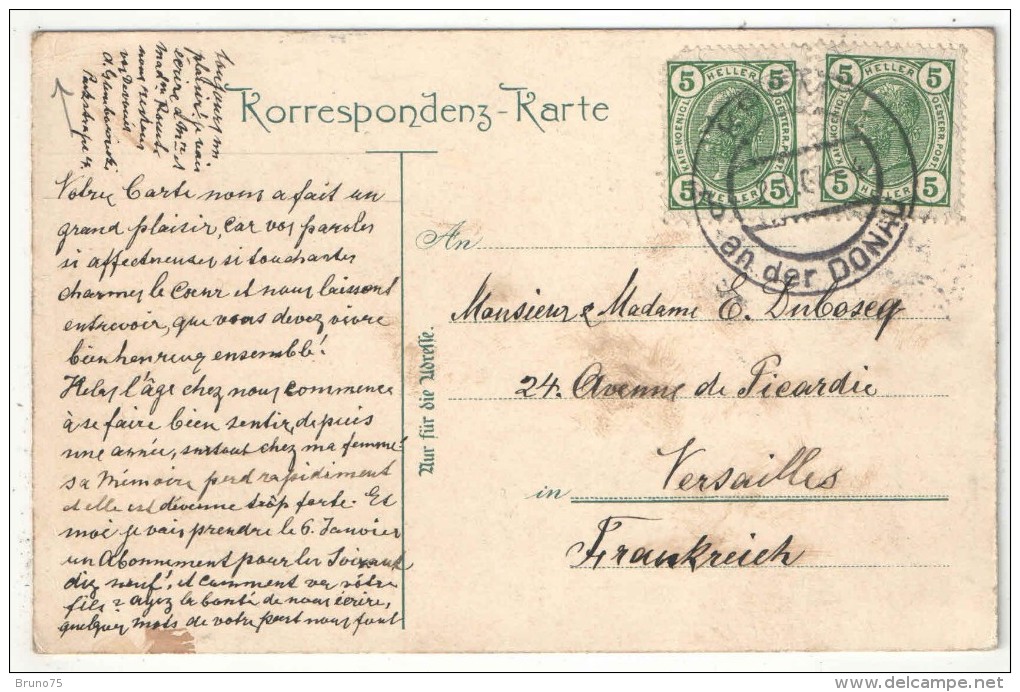 Korrespondenz-Karte
Votre Carte nous a fait un
grand plaisir, car vos paroles
si affectueuses si touchantes
charmes le Coeur et nous laissent
entrevoir, que vous devez vivre
bienhenreux ensemble!
Helas l'âge chez nous commence
à se faire bien sentir, depuis
une année, surtout chez ma femme!
sa Mémoire perd rapidiment
et elle est devenue trop forte. Et
moi je vais prendre le 6. Janvier
un Abonnement pour les Soixante
dix neuf! et comment va vôtre
fils? ayez la bonté de nous écrire,
quelques mots de votre part nous font
toujours un
plaisir, je vais
écrire à Mr et
nous restons
vos Devoués
Nur für die Adresse.
An
Monsieur & Madame E. Duboscq
24. Avenue de Picardie
in Versailles
Frankreich
5 HELLER 5
KAIS. KOENIGL. OESTERR. POST.
5 HELLER 5
5 HELLER 5
KAIS. KOENIGL. OESTERR. POST.
5 HELLER 5
an der DONAU
Bruno75
delcampe.net